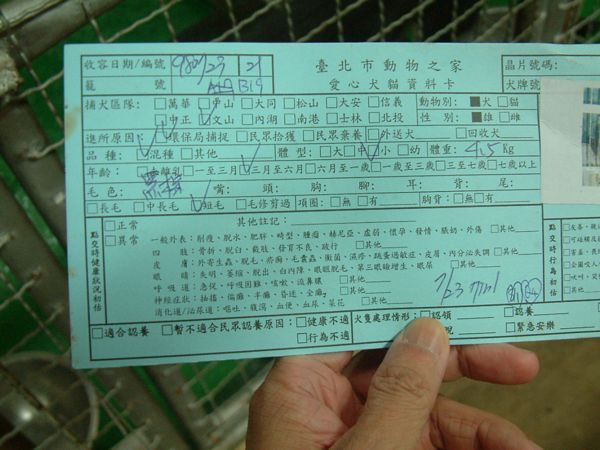 收容日期/編號 980723 21 臺北市動物之家 晶片號碼:
籠 號 B19 愛心犬貓資料卡 犬牌號
捕犬區隊: □萬華 □中山 □大同 □松山 □大安 □信義 動物別: ■犬 □貓
□中正 □文山 □內湖 □南港 □士林 □北投 性 別: ■雄 □雌
進所原因: □環保局捕捉 □民眾拾獲 □民眾棄養 □外送犬 □回收犬
品 種: □混種 □其他 體 型: □大 □中 □小 □幼 體重: 4.5 Kg
年齡: □未離乳 □一至三月 □三月至六月 □六月至一歲 □一歲至三歲 □三至七歲 □七歲以上
毛色: 嘴: 頭: 胸: 腳: 耳: 背: 尾:
□長毛 □中長毛 □短毛 □毛修剪過 項圈: □無 □有 胸背: □無 □有
點交時健康狀況初估 □正常 其他註記:
□異常 一般外表: 削瘦、脫水、肥胖、畸型、腫瘤、赫尼亞、虛弱、懷孕、發情、脹奶、外傷 □其他
四 肢: 骨折、脫臼、截肢、發育不良、跛行 □其他
皮 膚: 外寄生蟲、脫毛、疥癬、毛囊蟲、黴菌、濕疹、跳蚤過敏症、皮屑、內分泌失調 □其他
眼 睛: 失明、萎縮、脫出、白內障、眼瞼脫毛、第三眼瞼增生、眼屎 □其他
呼 吸 道: 急促、呼吸困難、咳嗽、流鼻膿 □其他
神經症狀: 抽搐、偏癱、半癱、昏迷、全癱 □其他
消化道/泌尿道: 嘔吐、腹瀉、血便、血尿、菜花 □其他
7/23
點交時行為初估
□適合認養 □暫不適合民眾認養原因: □健康不適 犬隻處理情形: □認領 □認養
□行為不適 □緊急安樂